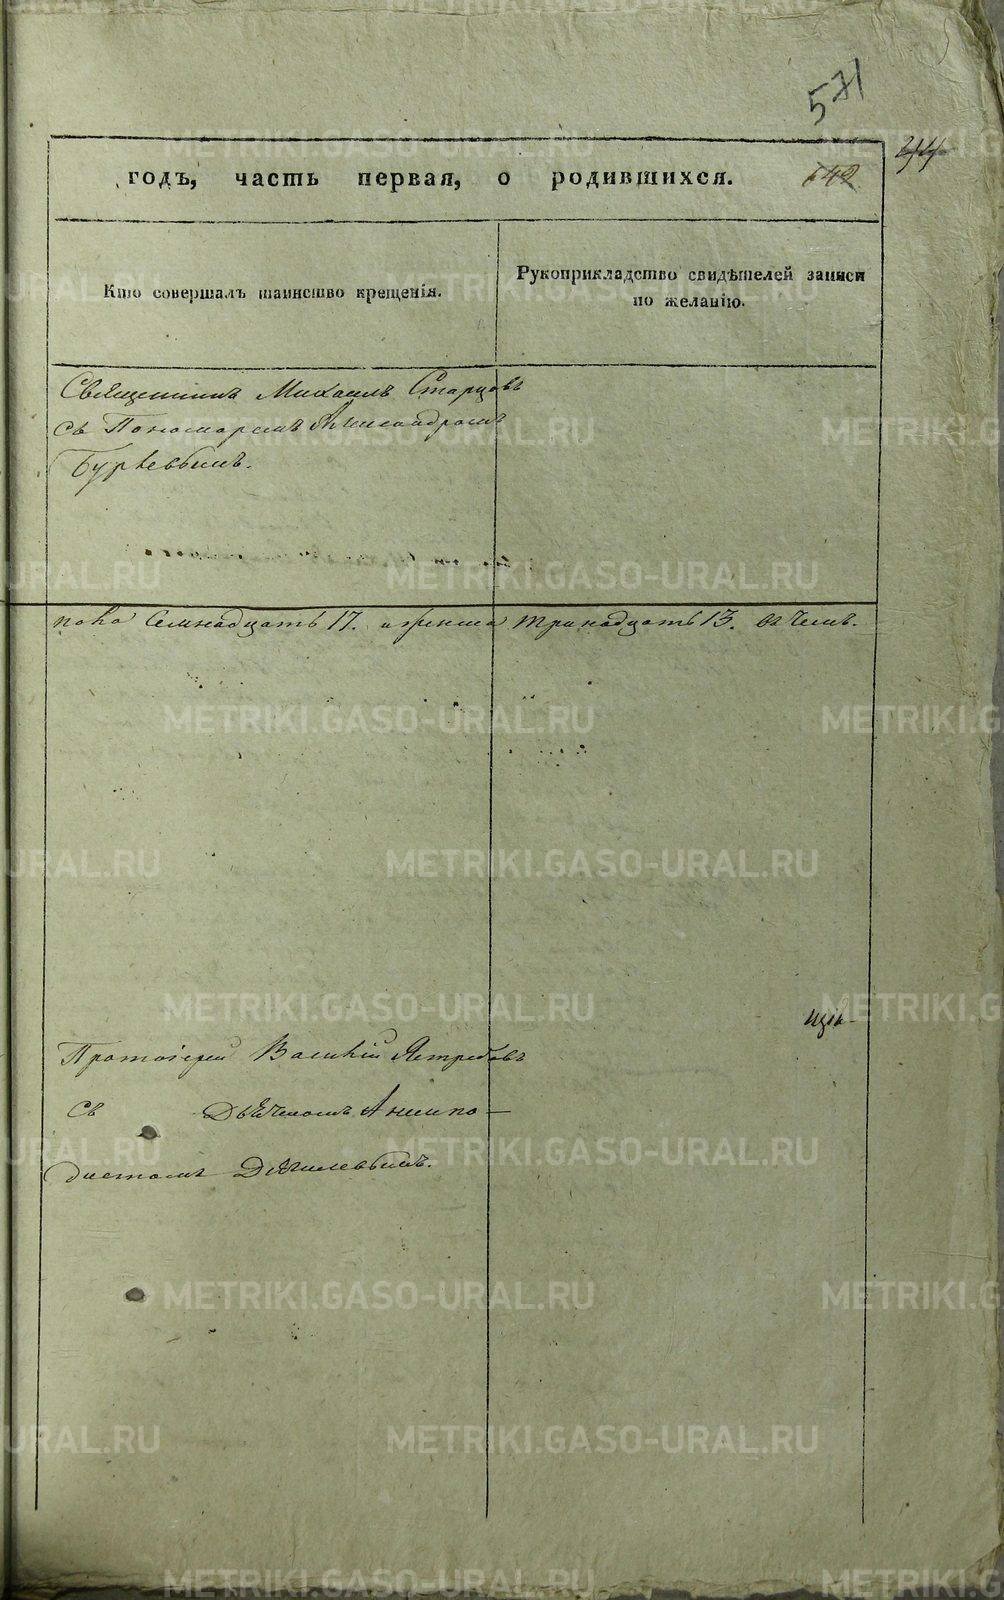 571
244
годъ, часть первая, о родившихся. 642
Кто совершалъ таинство крещенія.
Рукоприкладство свидѣтелей записи
по желанію.
Священникъ Михаилъ Старцовъ
Съ Пономаремъ Александромъ
Бурѣевымъ.
пола Семнадцать 17. а женска тринадцать 13. въ Чемъ.
Протоіерей Василій Ястребовъ
Съ Дьячкомъ Анемпо-
дистомъ Дягилевымъ.
METRIKI.GASO-URAL.RU